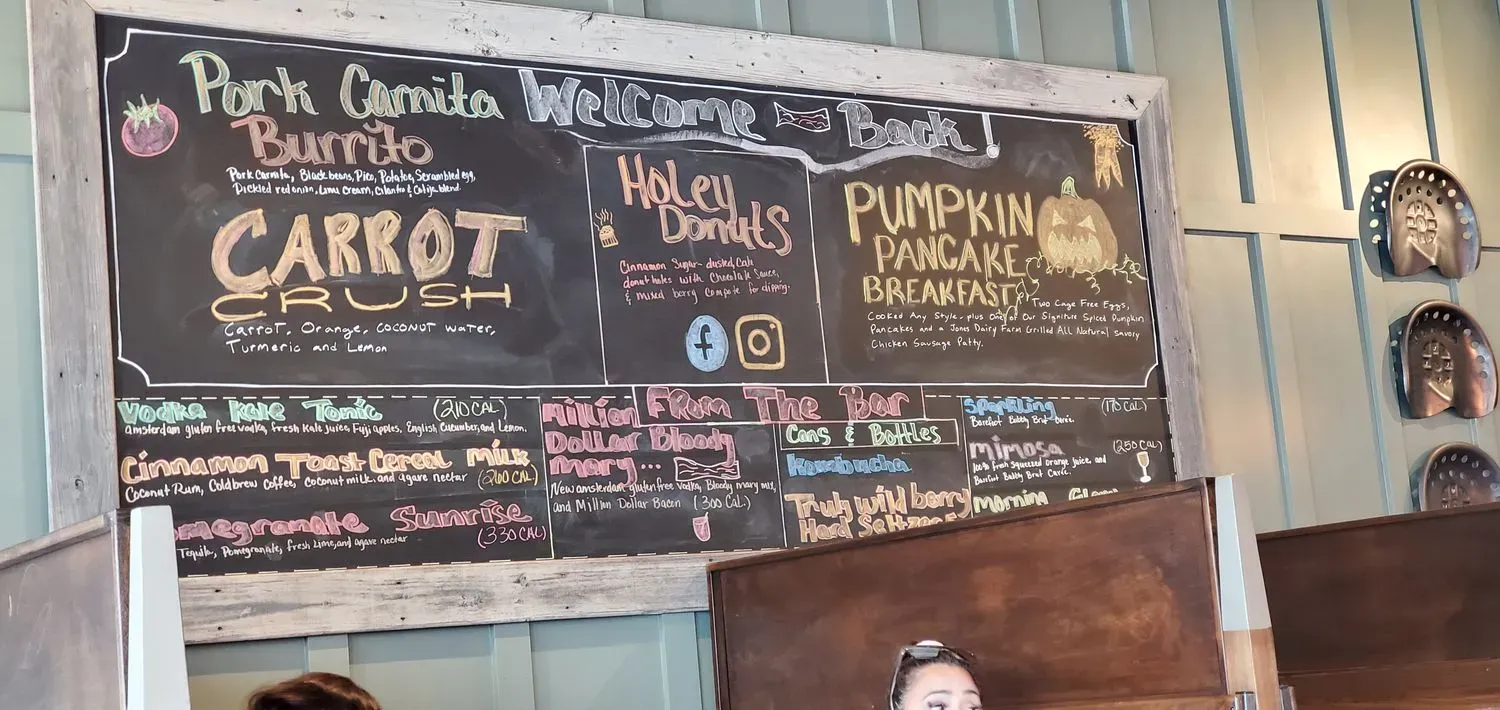 Welcome Back!
Pork Carnita
Burrito
Pork Carnita, Black beans, Pico, Potatoe, Scrambled egg,
Pickled red onion, Lime Cream, Cilantro & Cotija blend.
CARROT
CRUSH
Carrot, Orange, coconut water,
Turmeric and Lemon
Holey
Donuts
Cinnamon Sugar-dusted, Cake
donut holes with Chocolate Sauce,
& mixed berry Compote for dipping.
PUMPKIN
PANCAKE
BREAKFAST
Two Cage Free Eggs,
Cooked Any Style, plus One of Our Signiture Spiced Pumpkin
Pancakes and a Jones Dairy Farm Grilled All Natural savory
Chicken Sausage Patty.
From The Bar
Vodka Kale Tonic (210 CAL)
Amsterdam gluten free vodka, fresh Kale juice, Fuji apples, English Cucumber, and Lemon.
Cinnamon Toast Cereal Milk
Coconut Rum, Coldbrew Coffee, Coconut milk, and agave nectar (200 CAL)
omegranate Sunrise
Tequila, Pomegranate, fresh Lime, and agave nectar (330 CAL)
Million
Dollar Bloody
Mary...
New amsterdam gluten free Vodka, Bloody mary mix,
and Million Dollar Bacon (300 CAL.)
Cans & Bottles
Kombucha
Truly wild berry
Hard Seltzer
Sparkling (170 CAL)
Barefoot Bubbly Brut
mimosa (250 CAL)
100% fresh squeezed orange juice, and
Barefoot Bubbly Brut
morning Glory